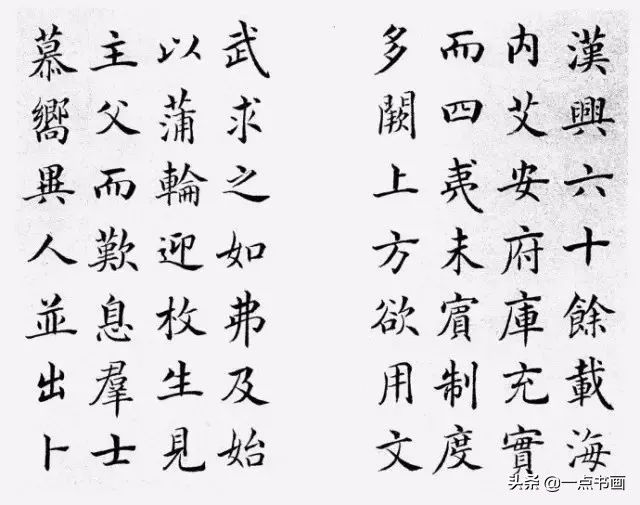 漢興六十餘載海
內艾安府庫充實
而四夷未賓制度
多闕上方欲用文
武求之如弗及始
以蒲輪迎枚生見
主父而歎息羣士
慕嚮異人並出卜
头条 @一点书画